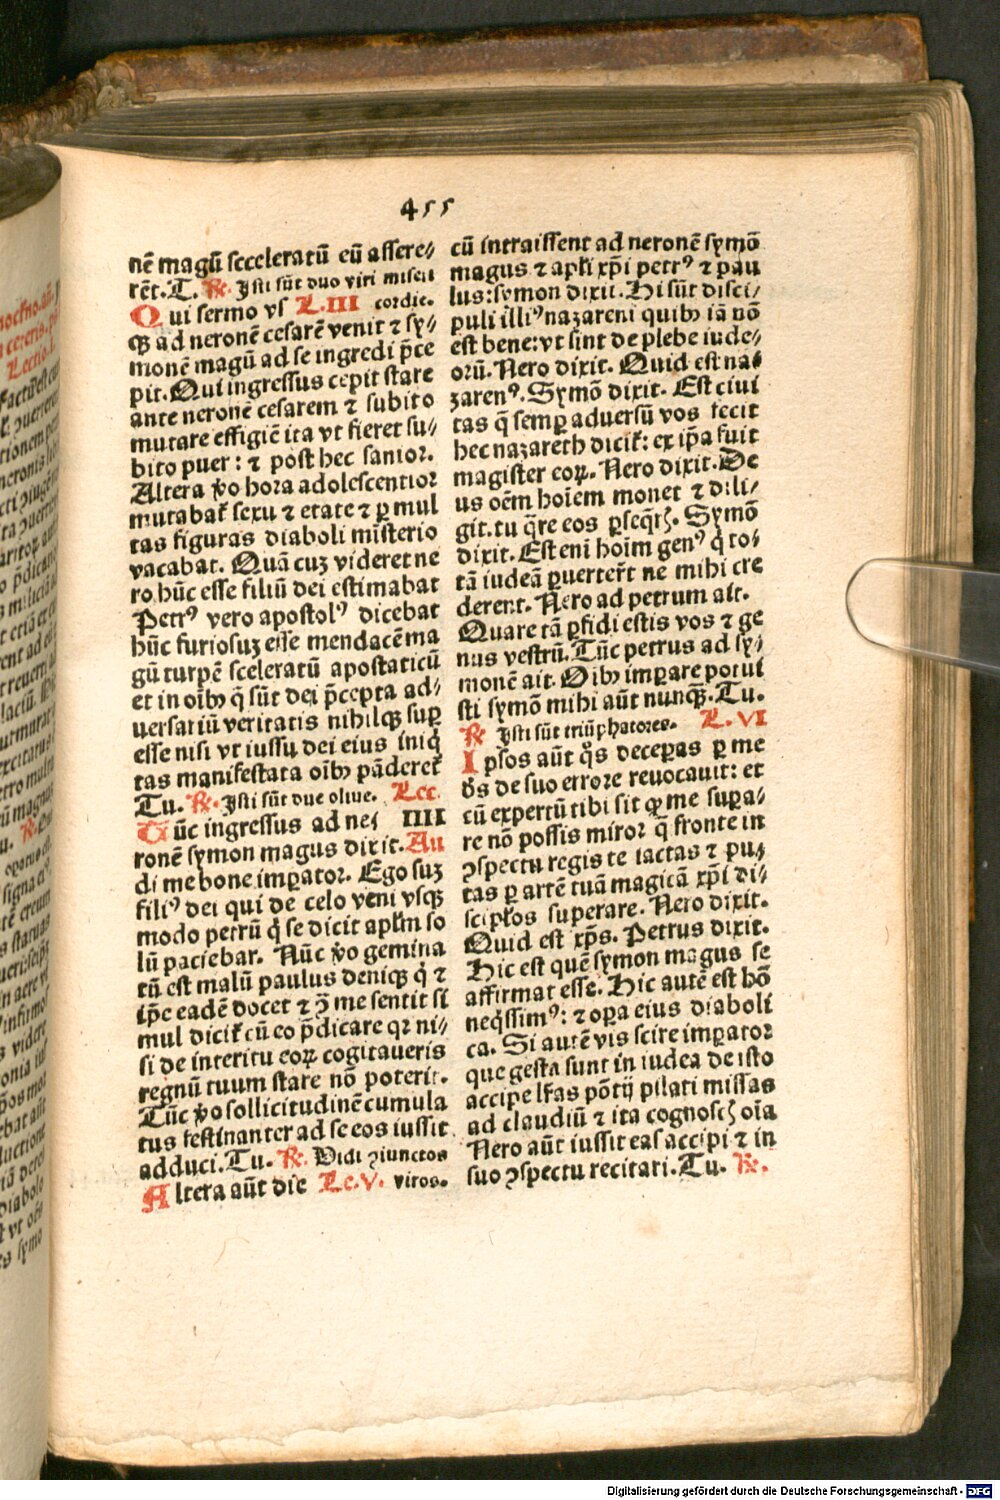 455
nē magū sceleratū eū assere⸗
rēt. T. ℟. Isti sūt duo viri miseri
Qui sermo vs L. III cordie.
q̄ ad neronē cesarē venit ⁊ sy⸗
monē magū ad se ingredi p̄ce
pit. Qui ingressus cepit stare
ante neronē cesarem ⁊ subito
mutare effigiē ita vt fieret su⸗
bito puer: ⁊ post hec sanior.
Altera ꝟo hora adolescentior
mutabat̄ sexu ⁊ etate ⁊ ꝑ mul
tas figuras diaboli mīsterio
vacabat. Quā cuꝫ videret ne
ro hūc esse filiū dei estimabat
Petrꝰ vero apostolꝰ dicebat
hūc furiosuꝫ esse mendacē ma
gū turpē sceleratū apostaticū
et in oībꝫ q̄ sūt dei p̄cepta ad⸗
uersariū veritatis nihilqꝫ suꝑ
esse nisi vt iussu dei eius iniq̇
tas manifestata oībꝫ pāderet̄
Tu. ℟. Isti sūt due oliue. Lec.
Tūc ingressus ad ne⸗ IIII
ronē symon magus dixit. Au
di me bone imꝑator. Ego suꝫ
filiꝰ dei qui de celo veni vsqꝫ
modo petrū q̇ se dicit apl̄m so
lū paciebar. Nūc ꝟo gemina
tū est malū paulus deniqꝫ q̇ ⁊
ip̄e eadē docet ⁊ ꝯ̄ me sentit si
mul dicit̄ cū eo p̄dicare qꝛ ni⸗
si de interitu eoꝝ cogitaueris
regnū tuum stare nō poterit.
Tūc ꝟo sollicitudinē cumula
tus festinanter ad se eos iussit
adduci. Tu. ℟. Vidi ꝯiunctos
Altera aūt die Lc. V. viros.
cū intraissent ad neronē symō
magus ⁊ apl̄i xp̄i petrꝰ ⁊ pau
lus: symon dixit. Hi sūt disci⸗
puli illiꝰ nazareni quibꝫ iā nō
est bene: vt sint de plebe iude⸗
orū. Nero dixit. Quid est na⸗
zarenꝰ. Symō dixit. Est ciui
tas q̄ semꝑ aduersū vos fecit
hec nazareth dicit̄: ex ip̄a fuit
magister eoꝝ. Nero dixit. De
us oēm hoīem monet ⁊ dili⸗
git. tu q̄re eos ꝑseq̄rꝭ. Symō
dixit. Est enī hoīm genꝰ q̇ to⸗
tā iudeā ꝑuerter̄t ne mihi cre
derent. Nero ad petrum ait.
Quare tā ꝑfidi estis vos ⁊ ge
nus vestrū. Tūc petrus ad sy⸗
monē ait. Oībꝫ imꝑare potui
sti symō mihi aūt nunqꝫ̄. Tu.
℟ Isti sūt triūphatores. L. VI
Ipsos aūt q̇s deceꝑas ꝑ me
ds̄ de suo errore reuocauit: et
cū expertū tibi sit qꝙ me suꝑa⸗
re nō possis miror q̄ fronte in
ꝯspectu regis te iactas ⁊ pu⸗
tas ꝑ artē tuā magicā xp̄i di⸗
scipl̄os superare. Nero dixit.
Quid est xp̄s. Petrus dixit.
Hic est quē symon magus se
affirmat esse. Hic autē est hō
neq̇ssimꝰ: ⁊ oꝑa eius diaboli
ca. Si autē vis scire imꝑator
que gesta sunt in iudea de isto
accipe lr̄as pōtij pilati missas
ad claudiū ⁊ ita cognoscꝭ oīa
Nero aūt iussit eas accipi ⁊ in
suo ꝯspectu recitari. Tu. ℟.
Digitalisierung gefördert durch die Deutsche Forschungsgemeinschaft - DFG